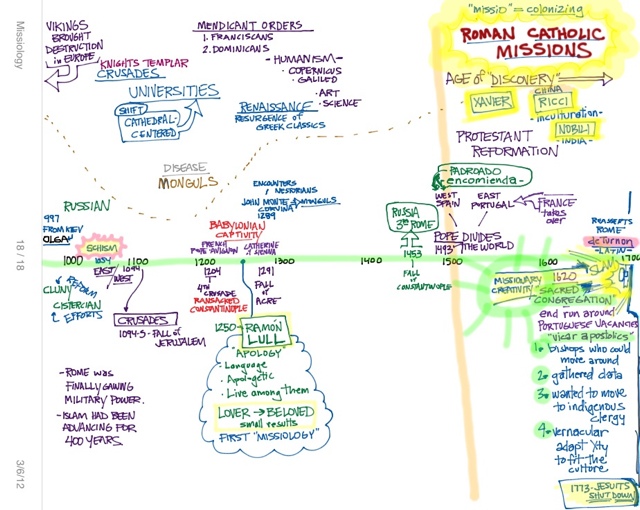 Missiology
18 / 18
3/6/12
VIKINGS
BROUGHT
DESTRUCTION
in EUROPE
KNIGHTS TEMPLAR
CRUSADES
UNIVERSITIES
SHIFT
CATHEDRAL-
CENTERED
MENDICANT ORDERS
1. FRANCISCANS
2. DOMINICANS
-HUMANISM-
• COPERNICUS
GALILEO
• ART
• SCIENCE
RENAISSANCE
RESURGENCE OF
GREEK CLASSICS
"missio" = colonizing
ROMAN CATHOLIC
MISSIONS
AGE of "DISCOVERY"
XAVIER
CHINA
RICCI
-inculturation-
NOBILI
-INDIA-
PROTESTANT
REFORMATION
DISEASE
MONGULS
RUSSIAN
997
FROM KIEV
OLGA
SCHISM
1054
EAST
WEST
ENCOUNTERS
NESTORIANS
JOHN MONTE
CORVINA
1289
BABYLONIAN
CAPTIVITY
CATHERINE
of SIENNA
PADROADO
encomienda-
WEST
SPAIN
EAST
PORTUGAL
FRANCE
takes
over
POPE DIVIDES
1493 THE WORLD
RUSSIA
3rd ROME
1453
FALL
OF
CONSTANTINOPLE
REASSERTS
ROME
de Turnon
-LATIN-
1000
1100
1200
1300
1400
1500
1600
1700
CLUNY
CISTERCIAN
2 EFFORTS
REFORM
1094
CRUSADES
1094-5 - FALL of
JERUSALEM
1204
4TH
CRUSADE
RANSACKED
CONSTANTINOPLE
1291
FALL
OF
ACRE
1250
RAMÓN
LULL
"APOLOGY"
• Language
• Apologetic
• Live among them
LOVER → BELOVED
small results
FIRST "MISSIOLOGY"
- ROME WAS
FINALLY GAINING
MILITARY POWER.
- ISLAM HAD BEEN
ADVANCING FOR
400 YEARS.
MISSIONARY
CREATIVITY
1620
"SACRED
CONGREGATION"
end run around
PORTUGUESE VACANCIES
"vicar apostolics"
1. bishops who could
move around
2. gathered data
3. wanted to move
to indigenous
clergy
4. vernacular
adapt Xity
to fit the
culture
1773-JESUITS
SHUT DOWN